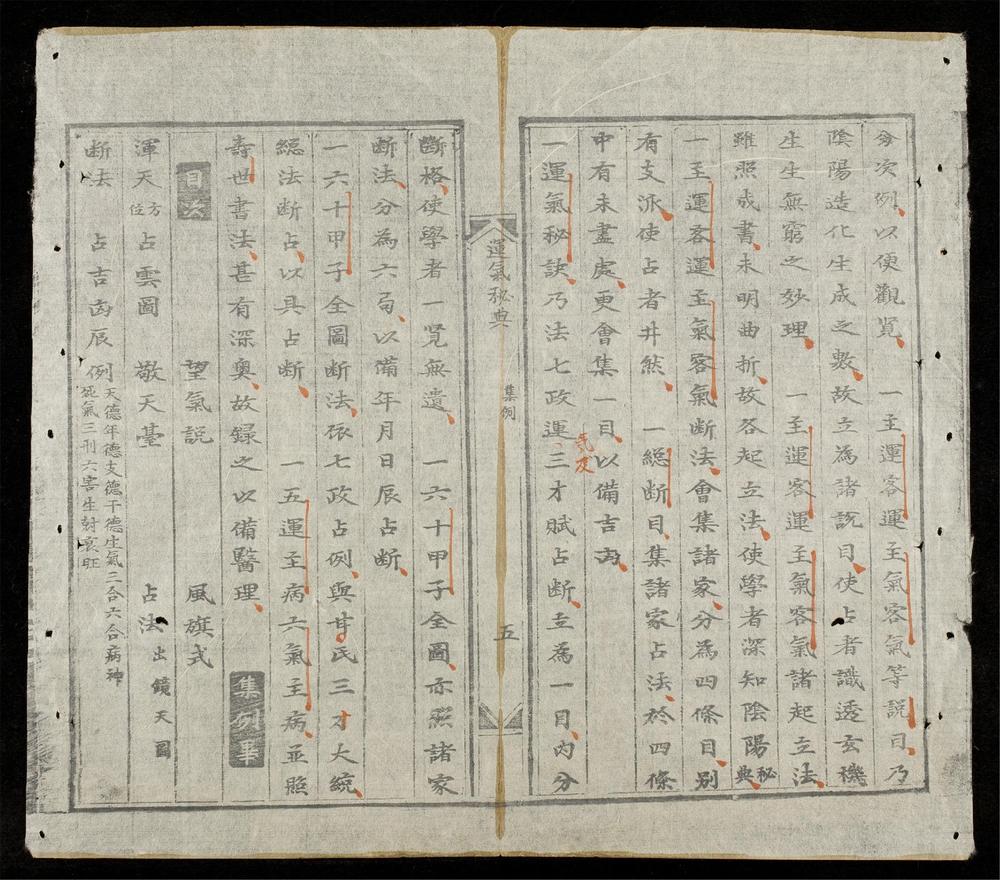 分次例以便觀覽一主運客運主氣客氣等説目乃
陰陽造化生成之數故立為諸説目使占者識透玄機
生生無窮之妙理一主運客運主氣客氣諸起立法
雖照成書未明曲折故各起立法使學者深知陰陽秘典
一主運客運主氣客氣断法會集諸家分為四條目别
有支派使占者井然一総断目集諸家占法於四條
中有未盡處更會集一目以備吉凶
一運氣秘訣乃法七政運三才賦占断立為一目内分
運氣秘典
集例
五
断格使學者一覽無遺一六十甲子全圖亦照諸家
断法分為六局以備年月日辰占断
一六十甲子全圖断法依七政占例與甘氏三才大統
総法断占以具占断一五運主病六氣主病並照
壽世書法甚有深奥故録之以備醫理
集例畢
目次
望氣説
風旗式
渾天方位占雲圖
敬天臺
占法出鏡天圖
断法占吉凶辰例
天德年德支德干德生氣三合六合病神
死氣三刑六害生尅衰旺